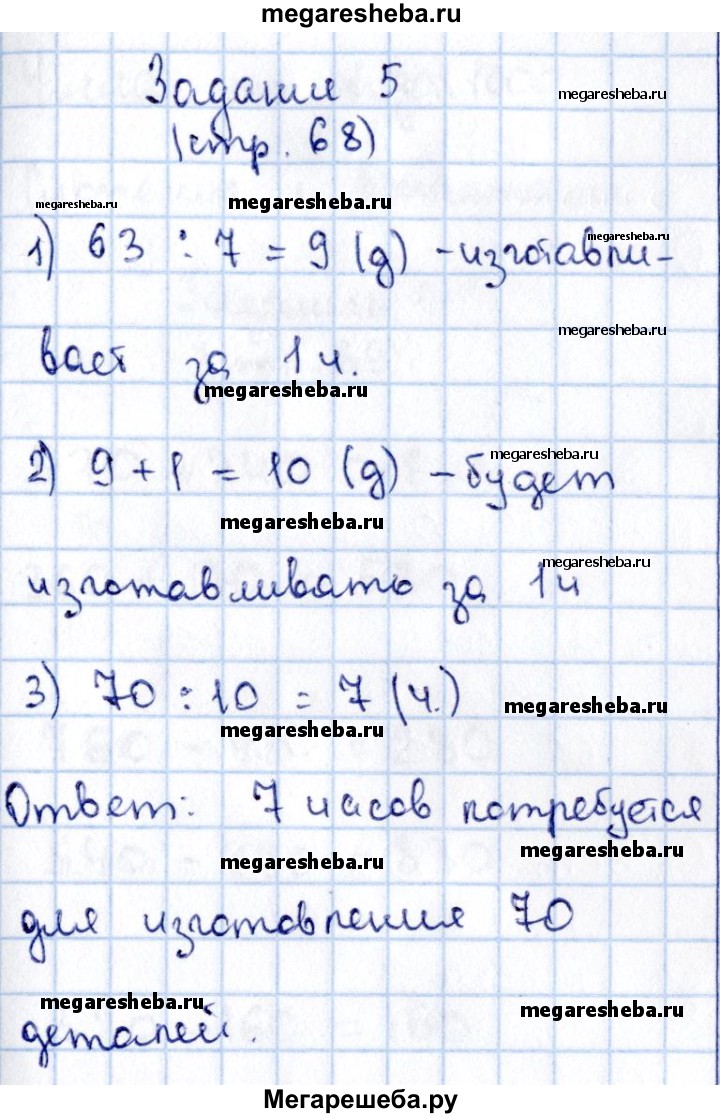 megaresheba.ru
Задание 5
megaresheba.ru
(стр. 68)
megaresheba.ru
megaresheba.ru
1) 63 : 7 = 9 (д) - изготавли-
megaresheba.ru
megaresheba.ru
вает за 1 ч.
megaresheba.ru
2) 9 + 1 = 10 (д) - будет
megaresheba.ru
megaresheba.ru
изготавливать за 1 ч
megaresheba.ru
3) 70 : 10 = 7 (ч.)
megaresheba.ru
megaresheba.ru
Ответ: 7 часов потребуется
megaresheba.ru
megaresheba.ru
для изготовления 70
megaresheba.ru
megaresheba.ru
деталей.
Мегарешеба.ру